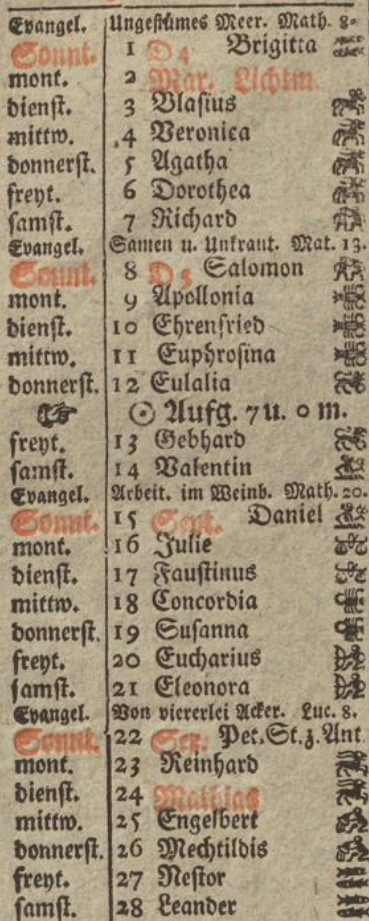 Evangel. Ungestümes Meer. Math. 8.
Sonnt. 1 D 4 Brigitta
mont. 2 Mar. Lichtm.
dienst. 3 Blasius
mittw. 4 Veronica
donnerst. 5 Agatha
freyt. 6 Dorothea
samst. 7 Richard
Evangel. Samen u. Unkraut. Mat. 13.
Sonnt. 8 D 5 Salomon
mont. 9 Apollonia
dienst. 10 Ehrenfried
mittw. 11 Euphrosina
donnerst. 12 Eulalia
☞ ☉ Aufg. 7 u. 0 m.
freyt. 13 Gebhard
samst. 14 Valentin
Evangel. Arbeit. im Weinb. Math. 20.
Sonnt. 15 Sept. Daniel
mont. 16 Julie
dienst. 17 Faustinus
mittw. 18 Concordia
donnerst. 19 Susanna
freyt. 20 Eucharius
samst. 21 Eleonora
Evangel. Von viererlei Acker. Luc. 8.
Sonnt. 22 Sex. Pet. St. z. Ant
mont. 23 Reinhard
dienst. 24 Mathias
mittw. 25 Engelbert
donnerst. 26 Mechtildis
freyt. 27 Nestor
samst. 28 Leander